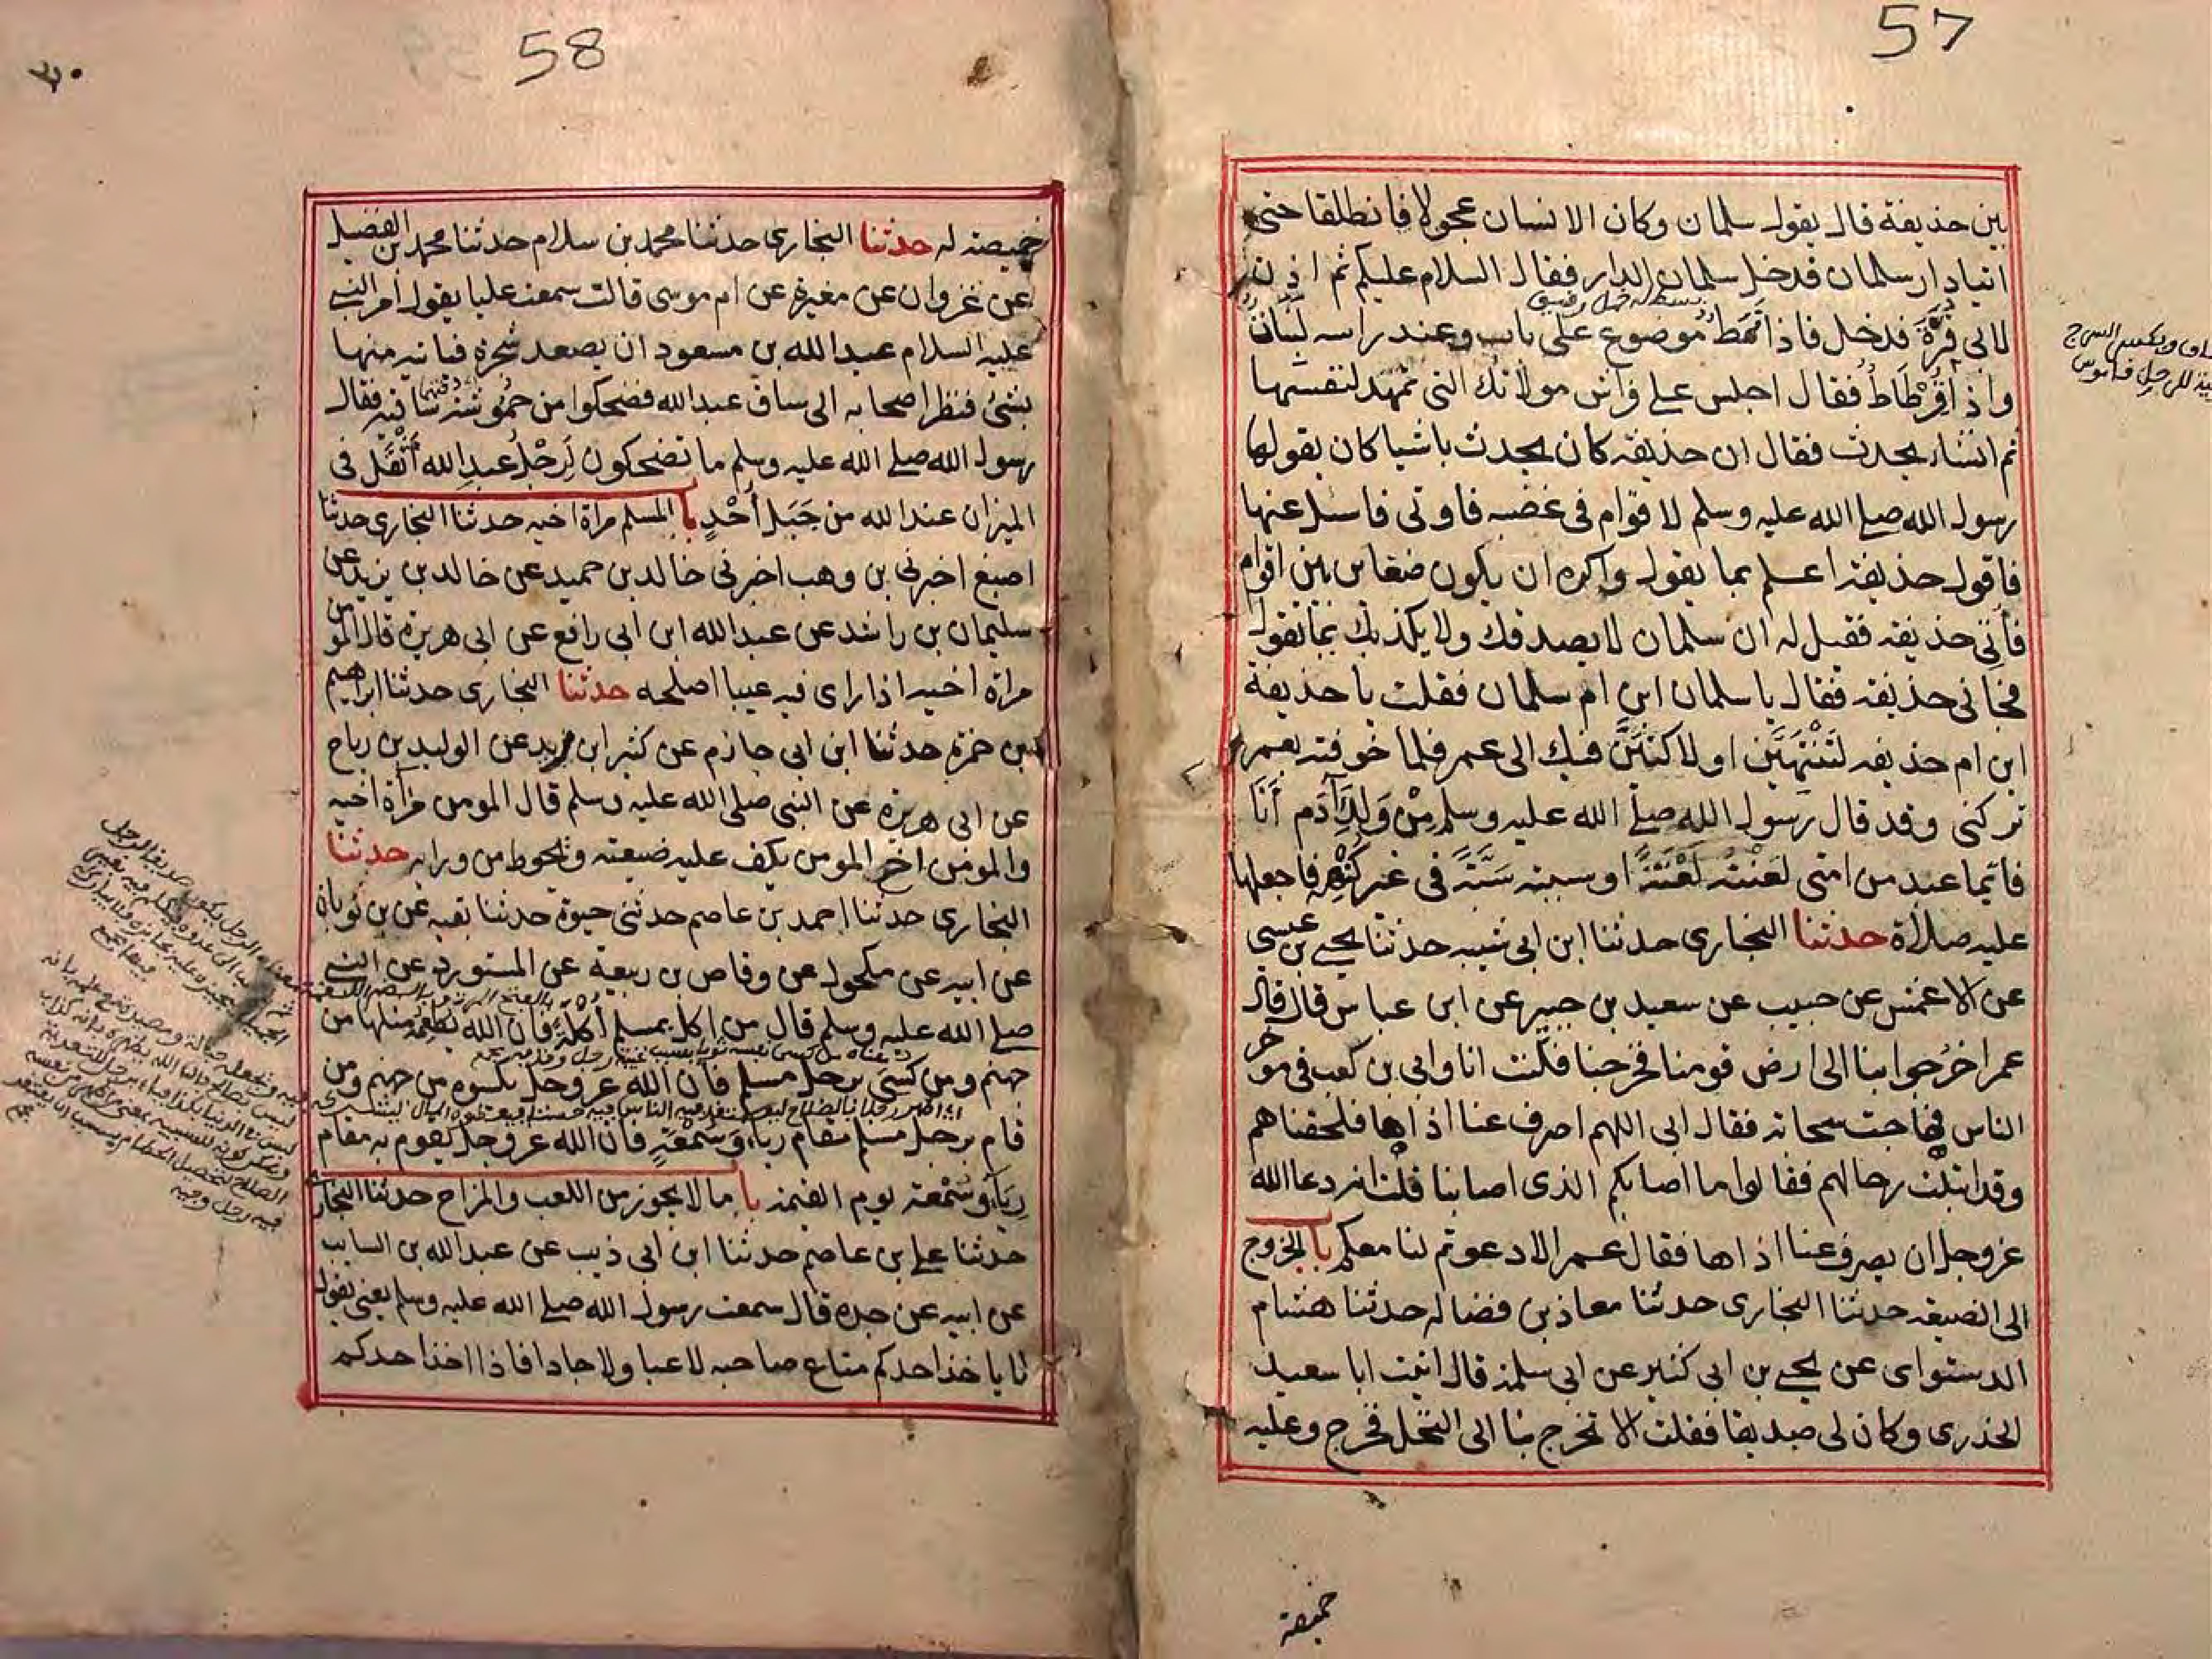 57
بين حذيفة قال يقول سلمان وكان الانسان عجولا فانطلقا حتى
اتيا دار سلمان فدخل سلمان الدار فقال السلام عليكم ثم اذن
لابي قرة فدخل فاذا نمط موضوع على باب وعند راسه لبنات
واذا قرطاط فقال اجلس على فراش مولاتك التي تمهد لنفسها
ثم انشاء يحدث فقال ان حذيفه كان يحدث باشيا كان يقولها
رسول الله صلى الله عليه وسلم لاقوام في غضبه فاوتى فاسئل عنها
فاقول حذيفة اعلم بما يقول واكره ان يكون ضغاين بين اقوام
فأتي حذيفه فقيل له ان سلمان لا يصدقك ولا يكذبك بما تقول
فجاني حذيفه فقال يا سلمان ابن ام سلمان فقلت يا حذيفة
ابن ام حذيفه لتنتهين او لاكتبن فيك الى عمر فلما خوفته بعمر
تركني وقد قال رسول الله صلى الله عليه وسلم من ولد آدم أنا
فايما عبد من امتي لعنته لعنة او سببته سبة في غير كنهه فاجعلها
عليه صلاة حدثنا البخاري حدثنا ابن ابي شيبه حدثنا يحيى بن عيسى
عن الاعمش عن حبيب عن سعيد بن جبير عن ابن عباس قال قال
عمر اخرجوا بنا الى ارض قومنا فخرجنا فكنت انا وابي بن كعب في موخر
الناس فهاجت سحابة فقال ابي اللهم اصرف عنا اذاها فلحقناهم
وقد ابتلت رحالهم فقالوا ما اصابكم الذي اصابنا قلت انه دعا الله
عزوجل ان يصرف عنا اذاها فقال عمر الا دعوتم لنا معكم با الخروج
الى الضيعه حدثنا البخاري حدثنا معاذ بن فضاله حدثنا هشام
الدستواي عن يحيى بن ابي كثير عن ابي سلمة قال اتيت ابا سعيد
الخدري وكان لي صديقا فقلت الا تخرج بنا الى النخل فخرج وعليه
خميصة
58
٣٠
خميصة له حدثنا البخاري حدثنا محمد بن سلام حدثنا محمد بن الفضيل
عن غزوان عن مغيرة عن ام موسى قالت سمعت عليا يقول امر النبي
عليه السلام عبد الله بن مسعود ان يصعد شجرة فياتيه منها
بشئ فنظر اصحابه الى ساق عبد الله فضحكوا من حموشة ساقيه فقال
رسول الله صلى الله عليه وسلم ما تضحكون لرجل عبد الله اثقل في
الميزان عند الله من جبل أحد با المسلم مراة اخيه حدثنا البخاري حدثنا
اصبغ اخبرني بن وهب اخبرني خالد بن حميد عن خالد بن يزيد عن
سليمان بن راشد عن عبد الله ابن ابي رافع عن ابي هريرة قال المومن
مراة اخيه اذا راى فيه عيبا اصلحه حدثنا البخاري حدثنا ابراهيم
بن حمزة حدثنا ابن ابي حازم عن كثير ابن زيد عن الوليد بن رباح
عن ابي هريرة عن النبي صلى الله عليه وسلم قال المومن مرآة اخيه
والمومن اخو المومن يكف عليه ضيعته ويحوط من ورايه حدثنا
البخاري حدثنا احمد بن عاصم حدثني حيوة حدثنا بقيه عن بن ثوبان
عن ابيه عن مكحول عن وقاص بن ربيعة عن المستورد عن النبي
صلى الله عليه وسلم قال من اكل بمسلم اكلة فان الله يطعمه مثلها من
جهنم ومن كسي برجل مسلم فان الله عزوجل يكسوه من جهنم ومن
قام برجل مسلم مقام رياء وسمعة فان الله عزوجل يقوم به مقام
رياء وسمعة يوم القيمة با ما لا يجوز من اللعب والمزاح حدثنا البخاري
حدثنا علي بن عاصم حدثنا ابن ابي ذيب عن عبد الله بن السايب
عن ابيه عن جده قال سمعت رسول الله صلى الله عليه وسلم يعني يقول
لا ياخذ احدكم متاع صاحبه لاعبا ولا جادا فاذا اخذ احدكم